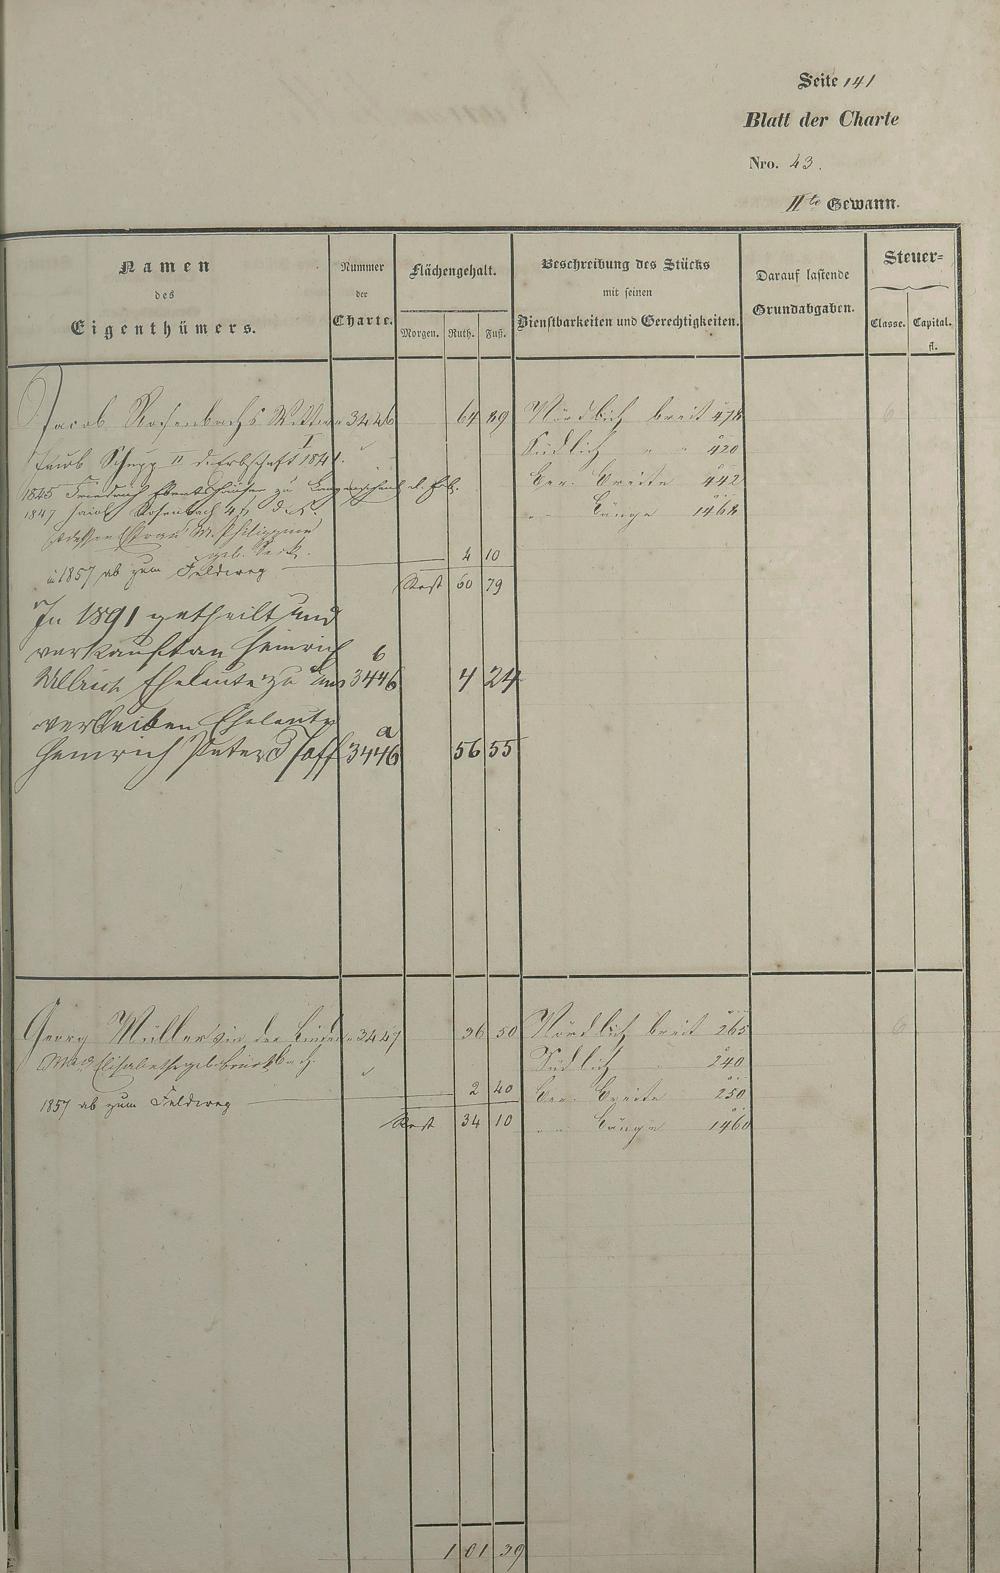 Seite 141
Blatt der Charte
Nro. 43.
IIte Gewann.
Namen
des
Eigenthümers.
Nummer
der
Charte.
Flächengehalt.
Morgen. Ruth. Fuß.
Beschreibung des Stücks
mit seinen
Dienstbarkeiten und Gerechtigkeiten.
Darauf lastende
Grundabgaben.
Steuer=
Classe. Capital.
fl.
Jacob Rosenbachs Wittwe 3446 64 89 Nördlich breit 478
Jacob Schupp II d. Erbschaft 1841. Südlich " " 420
1845 Friedrich zu d. Erb. Ber. Breite 442
1847 Jacob Rosenbach " Länge 1468
dessen Frau M. Philippine
geb.
1857 ab zum Feldweg 4 10
Rest 60 79
In 1891 getheilt und
verkauft an Heinrich b
Ullrich Eheleute zu 3446 4 24
verbleiben Eheleute a
Heinrich Peter Hoff 3446 56 55
Georg Müller in der Linden 3447 36 50 Nördlich breit 265
Elisabetha geb. Südlich " 240
2 40 Ber. Breite 250
1857 ab zum Feldweg
Rest 34 10 " Länge 1460
1 01 39